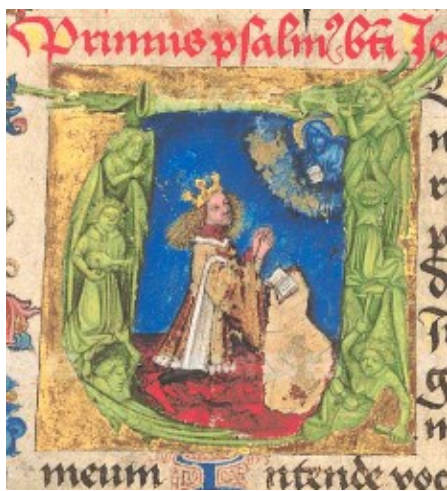 Primus psalm⁹ bti Je
meum Intende voc